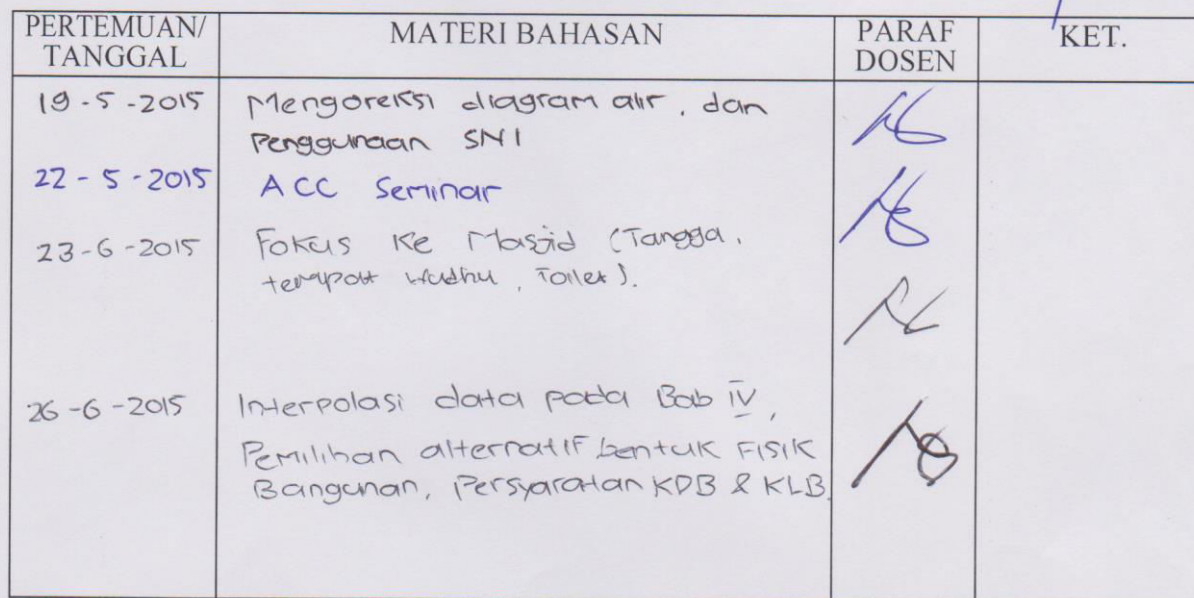 PERTEMUAN/ TANGGAL MATERI BAHASAN PARAF DOSEN KET.
19-5-2015 Mengoreksi diagram alir, dan
Penggunaan SNI
22-5-2015 ACC Seminar
23-6-2015 Fokus Ke Masjid (Tangga,
tempat Wudhu, Toilet).
26-6-2015 Interpolasi data pada Bab IV,
Pemilihan alternatif bentuk Fisik
Bangunan, Persyaratan KDB & KLB.